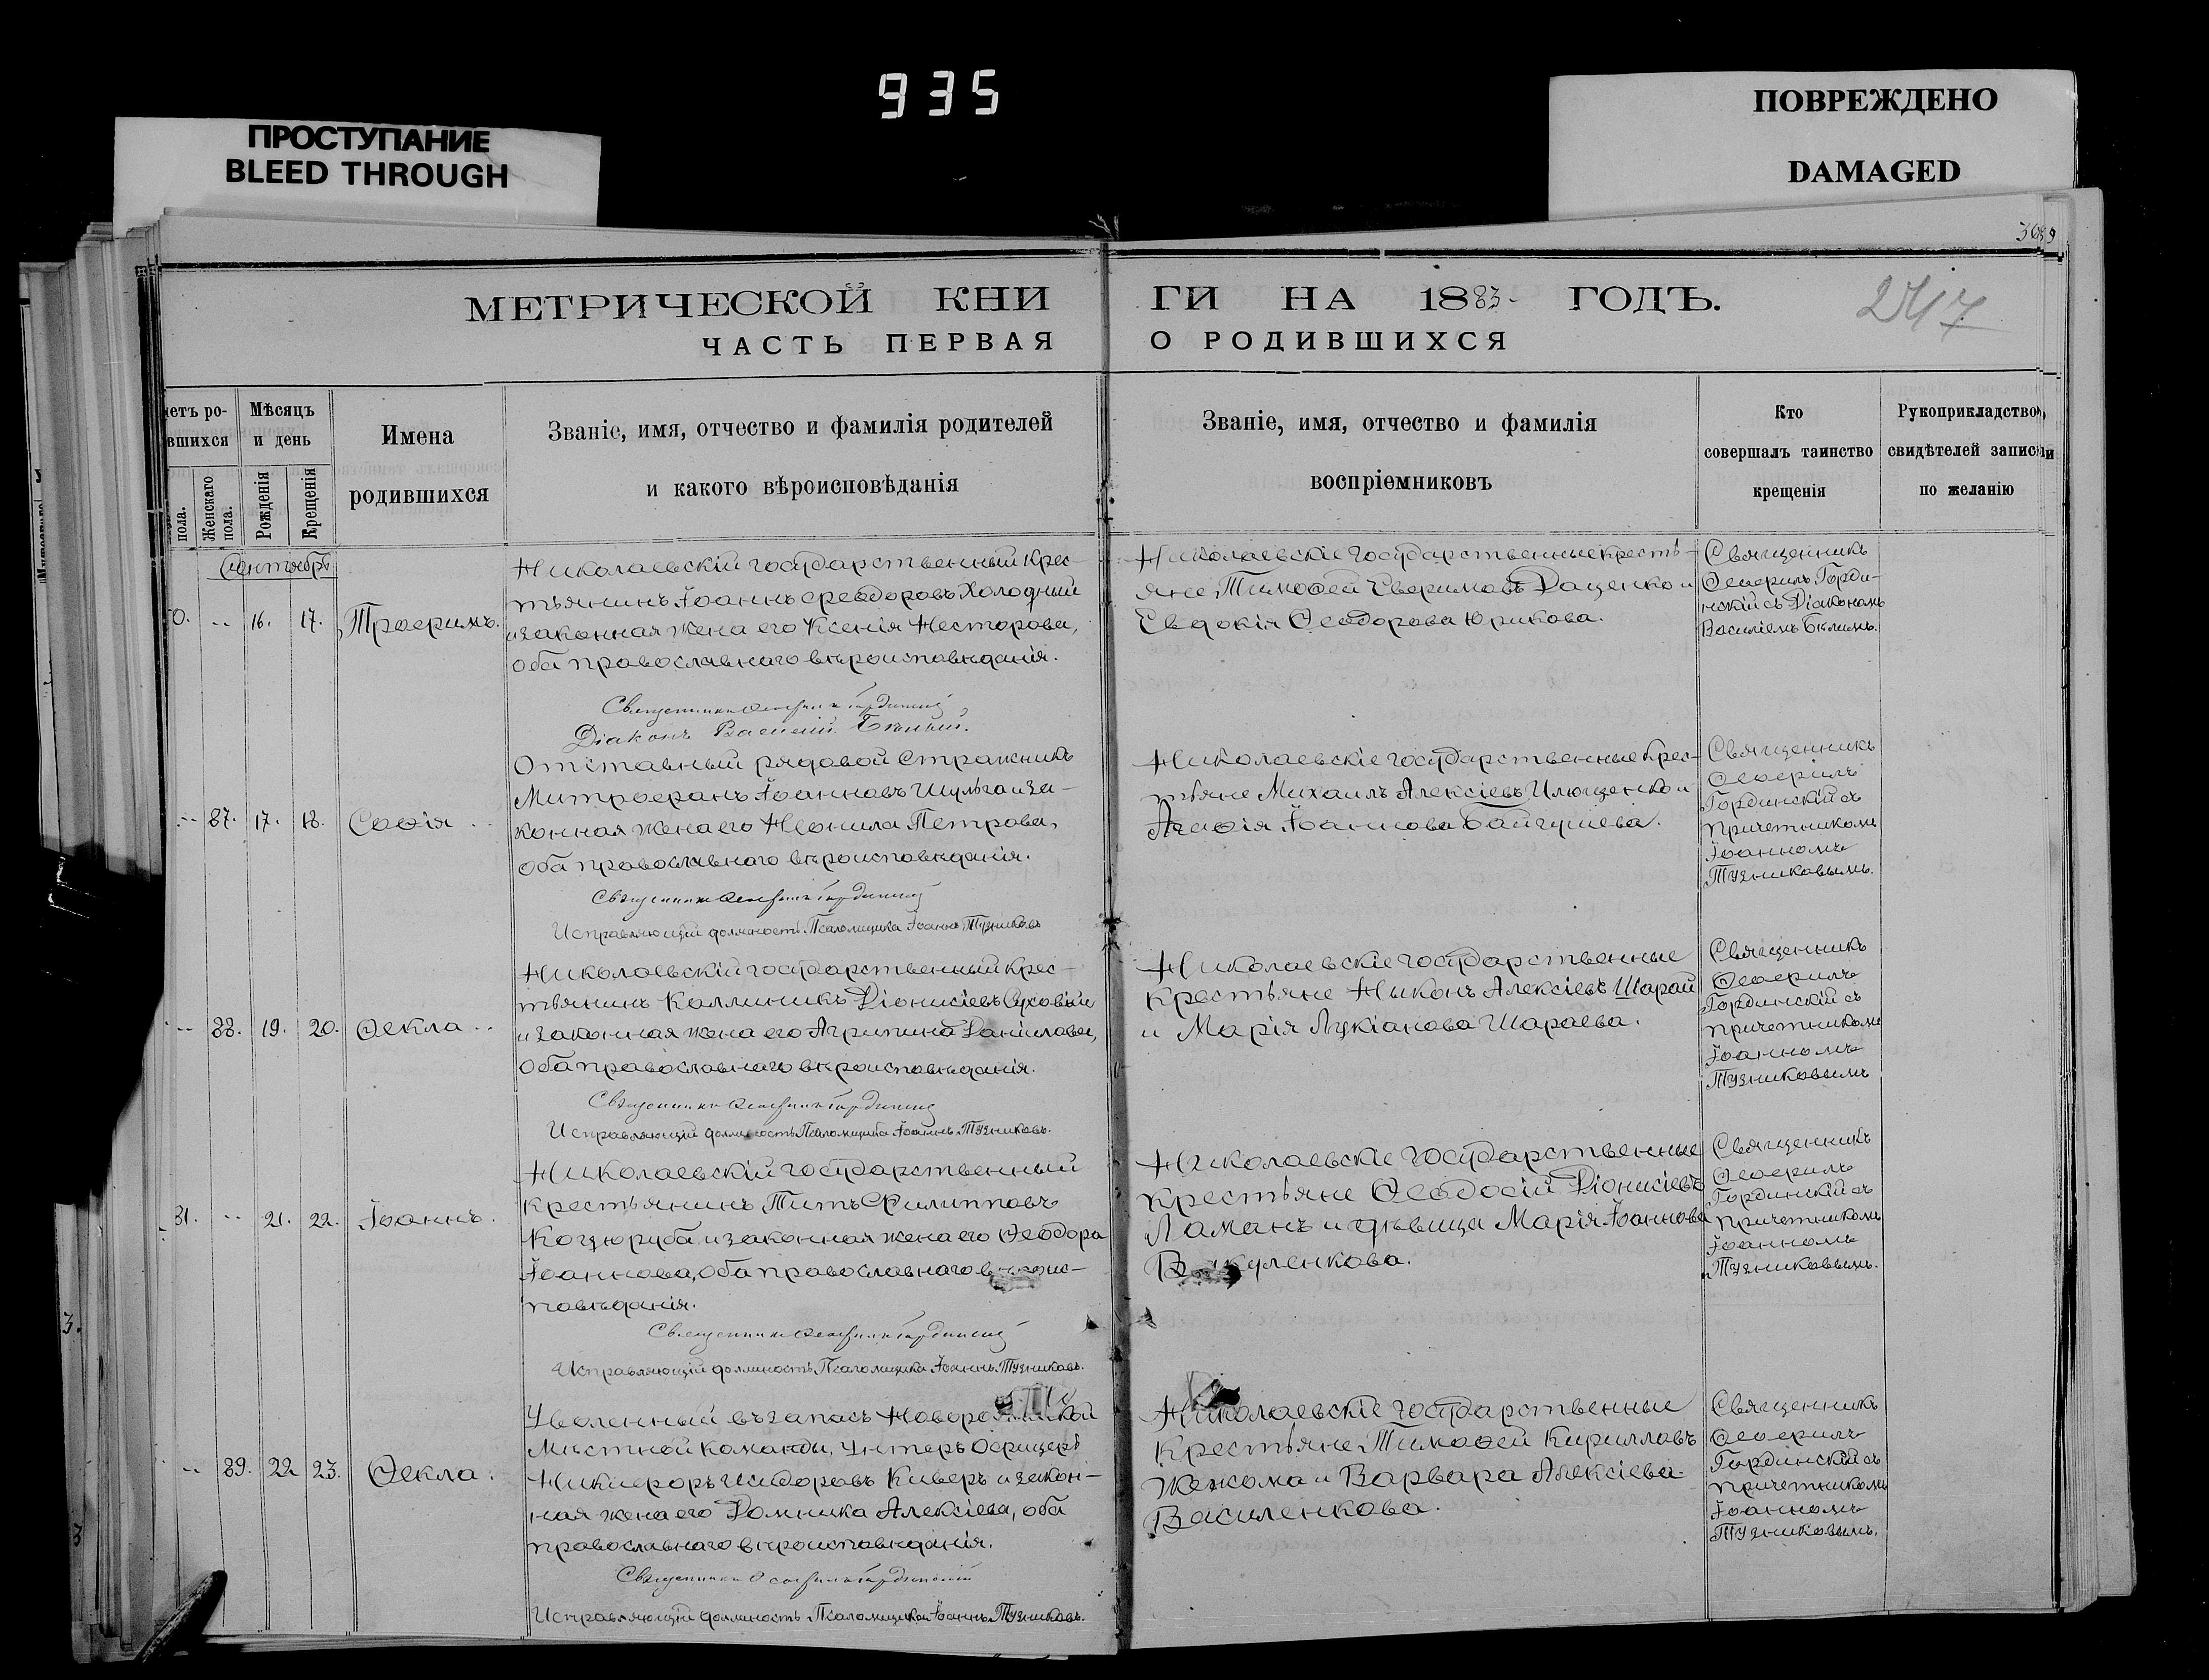 935
ПРОСТУПАНИЕ
BLEED THROUGH
ПОВРЕЖДЕНО
DAMAGED
МЕТРИЧЕСКОЙ КНИ
ГИ НА 1883 ГОДЪ.
2417
ЧАСТЬ ПЕРВАЯ
О РОДИВШИХСЯ
четъ ро-
вшихся
пола.
Женскаго пола.
Мѣсяцъ
и день
Рожденія
Крещенія
Имена
родившихся
Званіе, имя, отчество и фамилія родителей
и какого вѣроисповѣданія
Званіе, имя, отчество и фамилія
воспріемниковъ
Кто
совершалъ таинство
крещенія
Рукоприкладство
свидѣтелей записи
по желанію
Сентябрь
0. -- 16. 17. Трофимъ.
Николаевскій государственный крес-
тьянинъ Іоаннъ Ѳеодоровъ Холодный
и законная жена его Ксенія Несторова,
оба православнаго вѣроисповѣданія.
Священникъ Ѳеофилъ Гординскій
Діаконъ Василій Бѣлый.
Николаевскіе государственные кресть-
яне Тимоѳей Евфимовъ Даценко и
Евдокія Ѳеодорова Юрикова.
Священникъ
Ѳеофилъ Горди-
нскій съ Діакономъ
Василіемъ Бѣлымъ.
-- 87. 17. 18. Софія --
Отставный рядовой стражникъ
Митрофанъ Іоанновъ Шульга и за-
конная жена его Неонила Петрова,
оба православнаго вѣроисповѣданія.
Священникъ Ѳеофилъ Гординскій
Исправляющій должность Псаломщика Іоаннъ Тузниковъ
Николаевскіе государственные крес-
тьяне Михаилъ Алексіевъ Илющенко и
Агаѳія Іоаннова Байгушева.
Священникъ
Ѳеофилъ
Гординскій съ
причетникомъ
Іоанномъ
Тузниковымъ.
-- 88. 19. 20. Ѳекла --
Николаевскій государственный крес-
тьянинъ Каллиникъ Діонисіевъ Суховій
и законная жена его Агрипина Даніилова,
оба православнаго вѣроисповѣданія.
Священникъ Ѳеофилъ Гординскій
Исправляющій должность Псаломщика Іоаннъ Тузниковъ.
Николаевскіе государственные
крестьяне Никонъ Алексіевъ Шарай
и Марія Лукіанова Шараева.
Священникъ
Ѳеофилъ
Гординскій съ
причетникомъ
Іоанномъ
Тузниковымъ
81. -- 21. 22. Іоаннъ.
Николаевскій государственный
крестьянинъ Титъ Филипповъ
Коцюруба и законная жена его Ѳеодора
Іоаннова, оба православнаго вѣроис-
повѣданія.
Священникъ Ѳеофилъ Гординскій
Исправляющій должность Псаломщика Іоаннъ Тузниковъ.
Николаевскіе государственные
крестьяне Ѳеодосій Діонисіевъ
Ломанъ и дѣвица Марія Іоаннова
Священникъ
Ѳеофилъ
Гординскій съ
причетникомъ
Іоанномъ
Тузниковымъ.
-- 89. 22 23. Ѳекла.
Уволенный въ запасъ
Мѣстной команды, Унтеръ Офицеръ
Никифоръ Исидоровъ Киверъ и закон-
ная жена его Домника Алексіева, оба
православнаго вѣроисповѣданія.
Священникъ Ѳеофилъ Гординскій
Исправляющій должность Псаломщика Іоаннъ Тузниковъ.
Николаевскіе государственные
крестьяне Тимоѳей Кирилловъ
Жежома и Варвара Алексіева
Василенкова.
Священникъ
Ѳеофилъ
Гординскій съ
причетникомъ
Іоанномъ
Тузниковымъ.